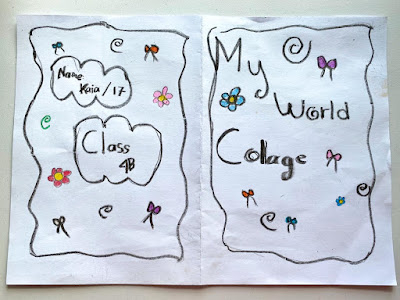 Name
Kaia/17
Class
4B
My
World
Collage